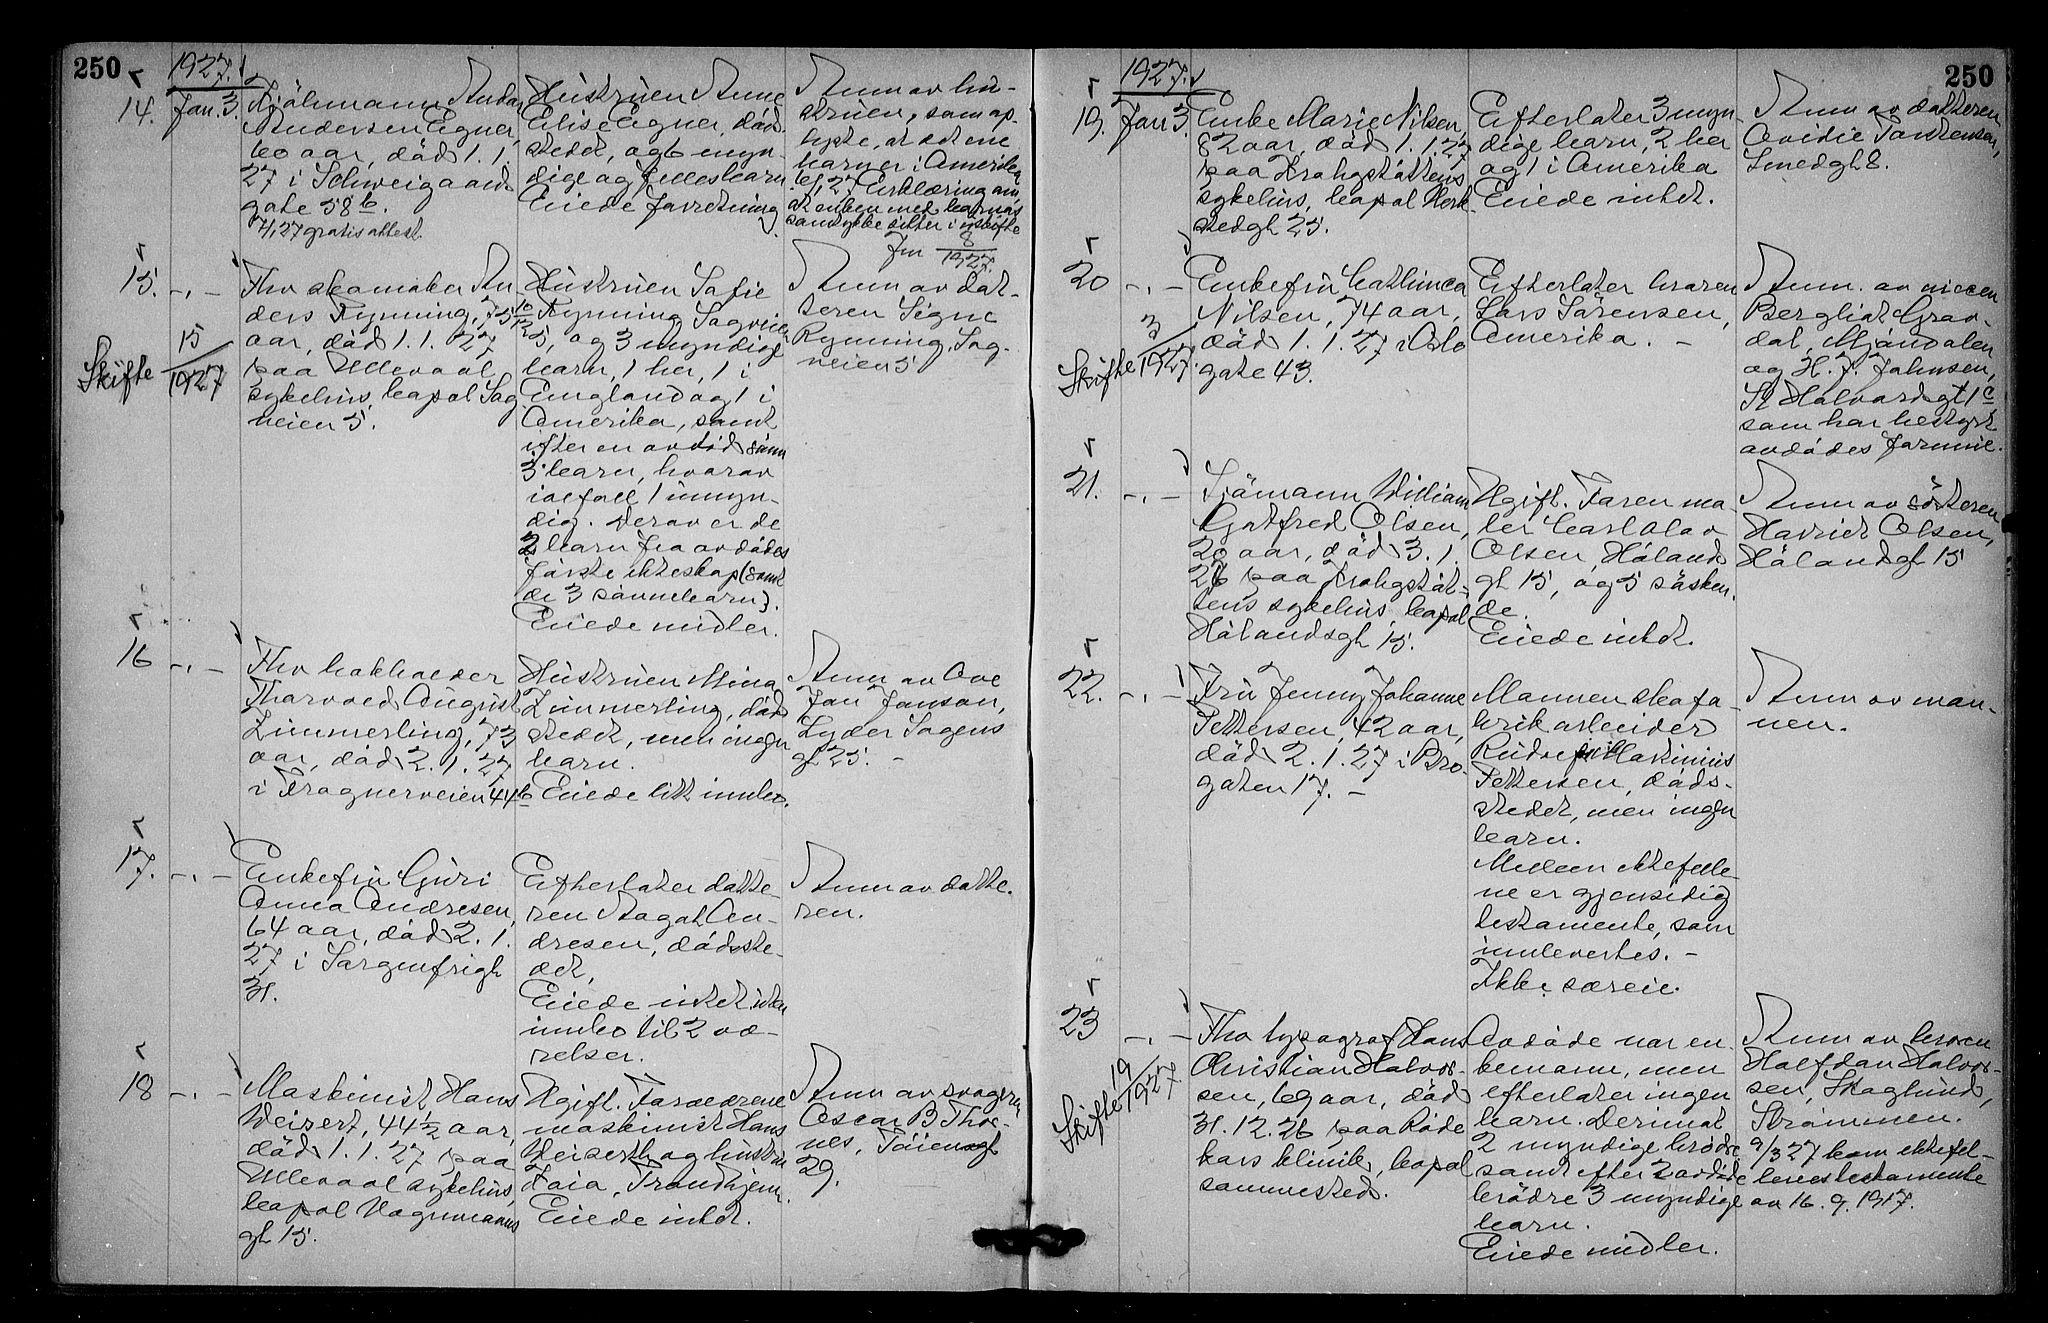 250
1927.
14. Jan. 3.
Kjöbmann Andor
Andersen Egner,
60 aar, död 1.1.
27 i Schweigaards
gate 58 b.
4/1 27 gratis attest.
Hustruen Anne
Elise Egner, död-
stedet, og 6 myn-
dige og felles barn
Eiede forretning
Anm av hu-
struen, som op-
lyste, at det ene
barn er i Amerika
6/1 27 Erklæring om
at enken med barnas
samtykke sitter i uskifte
Jnr 8/1927.
15. -"-
Skifte 15/1927
Fhv skomaker An
ders Rynning, 75 10/12
aar, död 1.1.27
paa Ullevaal
sykehus, bopal Sag
veien 5.
Hustruen Sofie
Rynning Sagveien
5, og 3 myndige
barn, 1 her, 1 i
England og 1 i
Amerika, samt
efter en avdöd sönn
3 barn, hvorav
ialfall 1 umyn-
dig. Derav er de
2 barn fra avdödes
förste ekteskap (samt
de 3 sönnebarn).
Eiede midler.
Anm av dat-
teren Signe
Rynning, Sag-
veien 5
16 -"-
Fhv bokholder
Thorvald August
Zimmerling, 73
aar, död 2.1.27
i Frognerveien 44 b
Hustruen Mina
Zimmerling, död
stedet, men ingen
barn.
Eiede litt innbo.
Anm av Ove
Jan Jonson,
Lyder Sagens
gt 25. -
17. -"-
Enkefru Guri
Anna Andresen,
64 aar, död 2.1.
27 i Sorgenfrigt
31.
Efterlater datte-
ren Aagot An-
dresen, dödsste-
det,
Eiede intet uten
innbo til 2 væ-
relser.
Anm av datte-
ren.
18 -"-
Maskinist Hans
Weisert, 44 1/2 aar,
död 1.1.27 paa
Ullevaal sykehus,
bopal Vognmanns
gt 15.
Ugift. Foreldrene
maskinist Hans
Weiserth og hustru
Kaia, Trondhjem.
Eiede intet.
Anm av svogeren
Oscar B Thor-
nes, Töiengt
29.
250
1927.
19. Jan 3.
Enke Marie Nilsen,
82 aar, död 1.1.27
paa Krohgstöttens
sykehus, bopal Verk-
stedgt 25.
Efterlater 3 myn-
dige barn, 2 her
og 1 i Amerika
Eiede intet.
Anm av datteren
Ovidie Torstensen,
Smedgt 8.
20 -"-
Skifte 3/1927.
Enkefru Cathinca
Nilsen, 74 aar,
död 1.1.27 i Oslo
gate 43.
Efterlater broren
Lars Sörensen,
Amerika. -
Anm. av niecen
Bergliot Grav-
dal, Mjöndalen
og H. J. Johnsen,
St Halvardsgt 1 c
som har bestyrt
avdödes formue.
21. -"-
Sjömann William
Gotfred Olsen,
20 aar, död 3.1.
26 paa Krohgstöt-
tens sykehus, bopal
Hölandsgt 15.
Ugift. Faren ma-
ler Carl Olav
Olsen, Hölands
gt 15, og 5 sösken-
de.
Eiede intet.
Anm av sösteren
Harriet Olsen,
Hölandsgt 15
22. -"-
Fru Jenny Johanne
Pettersen, 42 aar,
död 2.1.27 i Bro-
gaten 17. -
Mannen skofa-
brikarbeider
Rudolf Martinius
Pettersen, döds-
stedet, men ingen
barn.
Mellem ektefelle-
ne er gjensidig
testamente, som
innlevertes. -
Ikke særeie.
Anm av man-
nen.
23 -"-
Skifte 19/1927
Fhv typograf Hans
Christian Halvor-
sen, 69 aar, död
31.12.26 paa Röde
kors klinik, bopal
sammesteds.
Avdöde var en-
kemann, men
efterlater ingen
barn. Derimot
2 myndige brödre
samt efter 2 avdöde
brödre 3 myndige
barn.
Eiede midler.
Anm av broren
Halfdan Halvor-
sen, Skoglund,
Strömmen.
9/3 27 kom ektefel-
lenes testamente
av 16.9.1917.